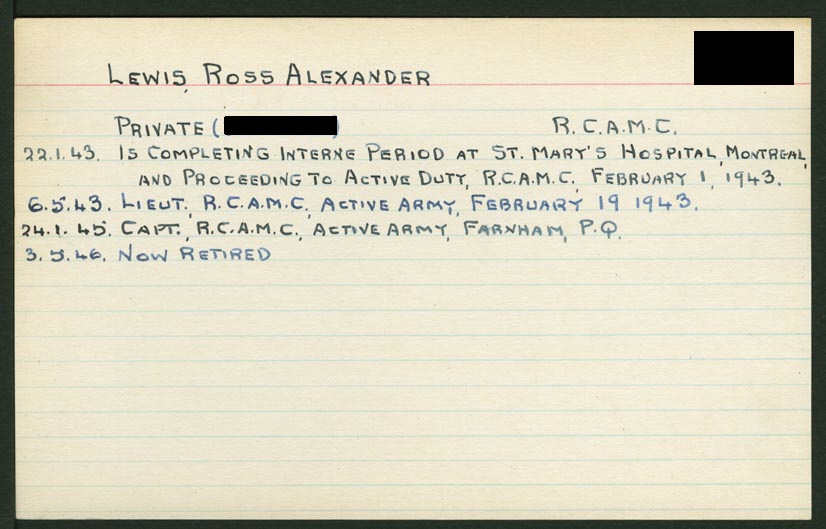 LEWIS, ROSS ALEXANDER
PRIVATE ( ) R.C.A.M.C.
22.1.43. IS COMPLETING INTERNE PERIOD AT ST. MARY'S HOSPITAL, MONTREAL,
AND PROCEEDING TO ACTIVE DUTY, R.C.A.M.C., FEBRUARY 1, 1943.
6.5.43. LIEUT., R.C.A.M.C., ACTIVE ARMY, FEBRUARY 19 1943.
24.1.45. CAPT., R.C.A.M.C., ACTIVE ARMY, FARNHAM, P.Q.
3.5.46. NOW RETIRED